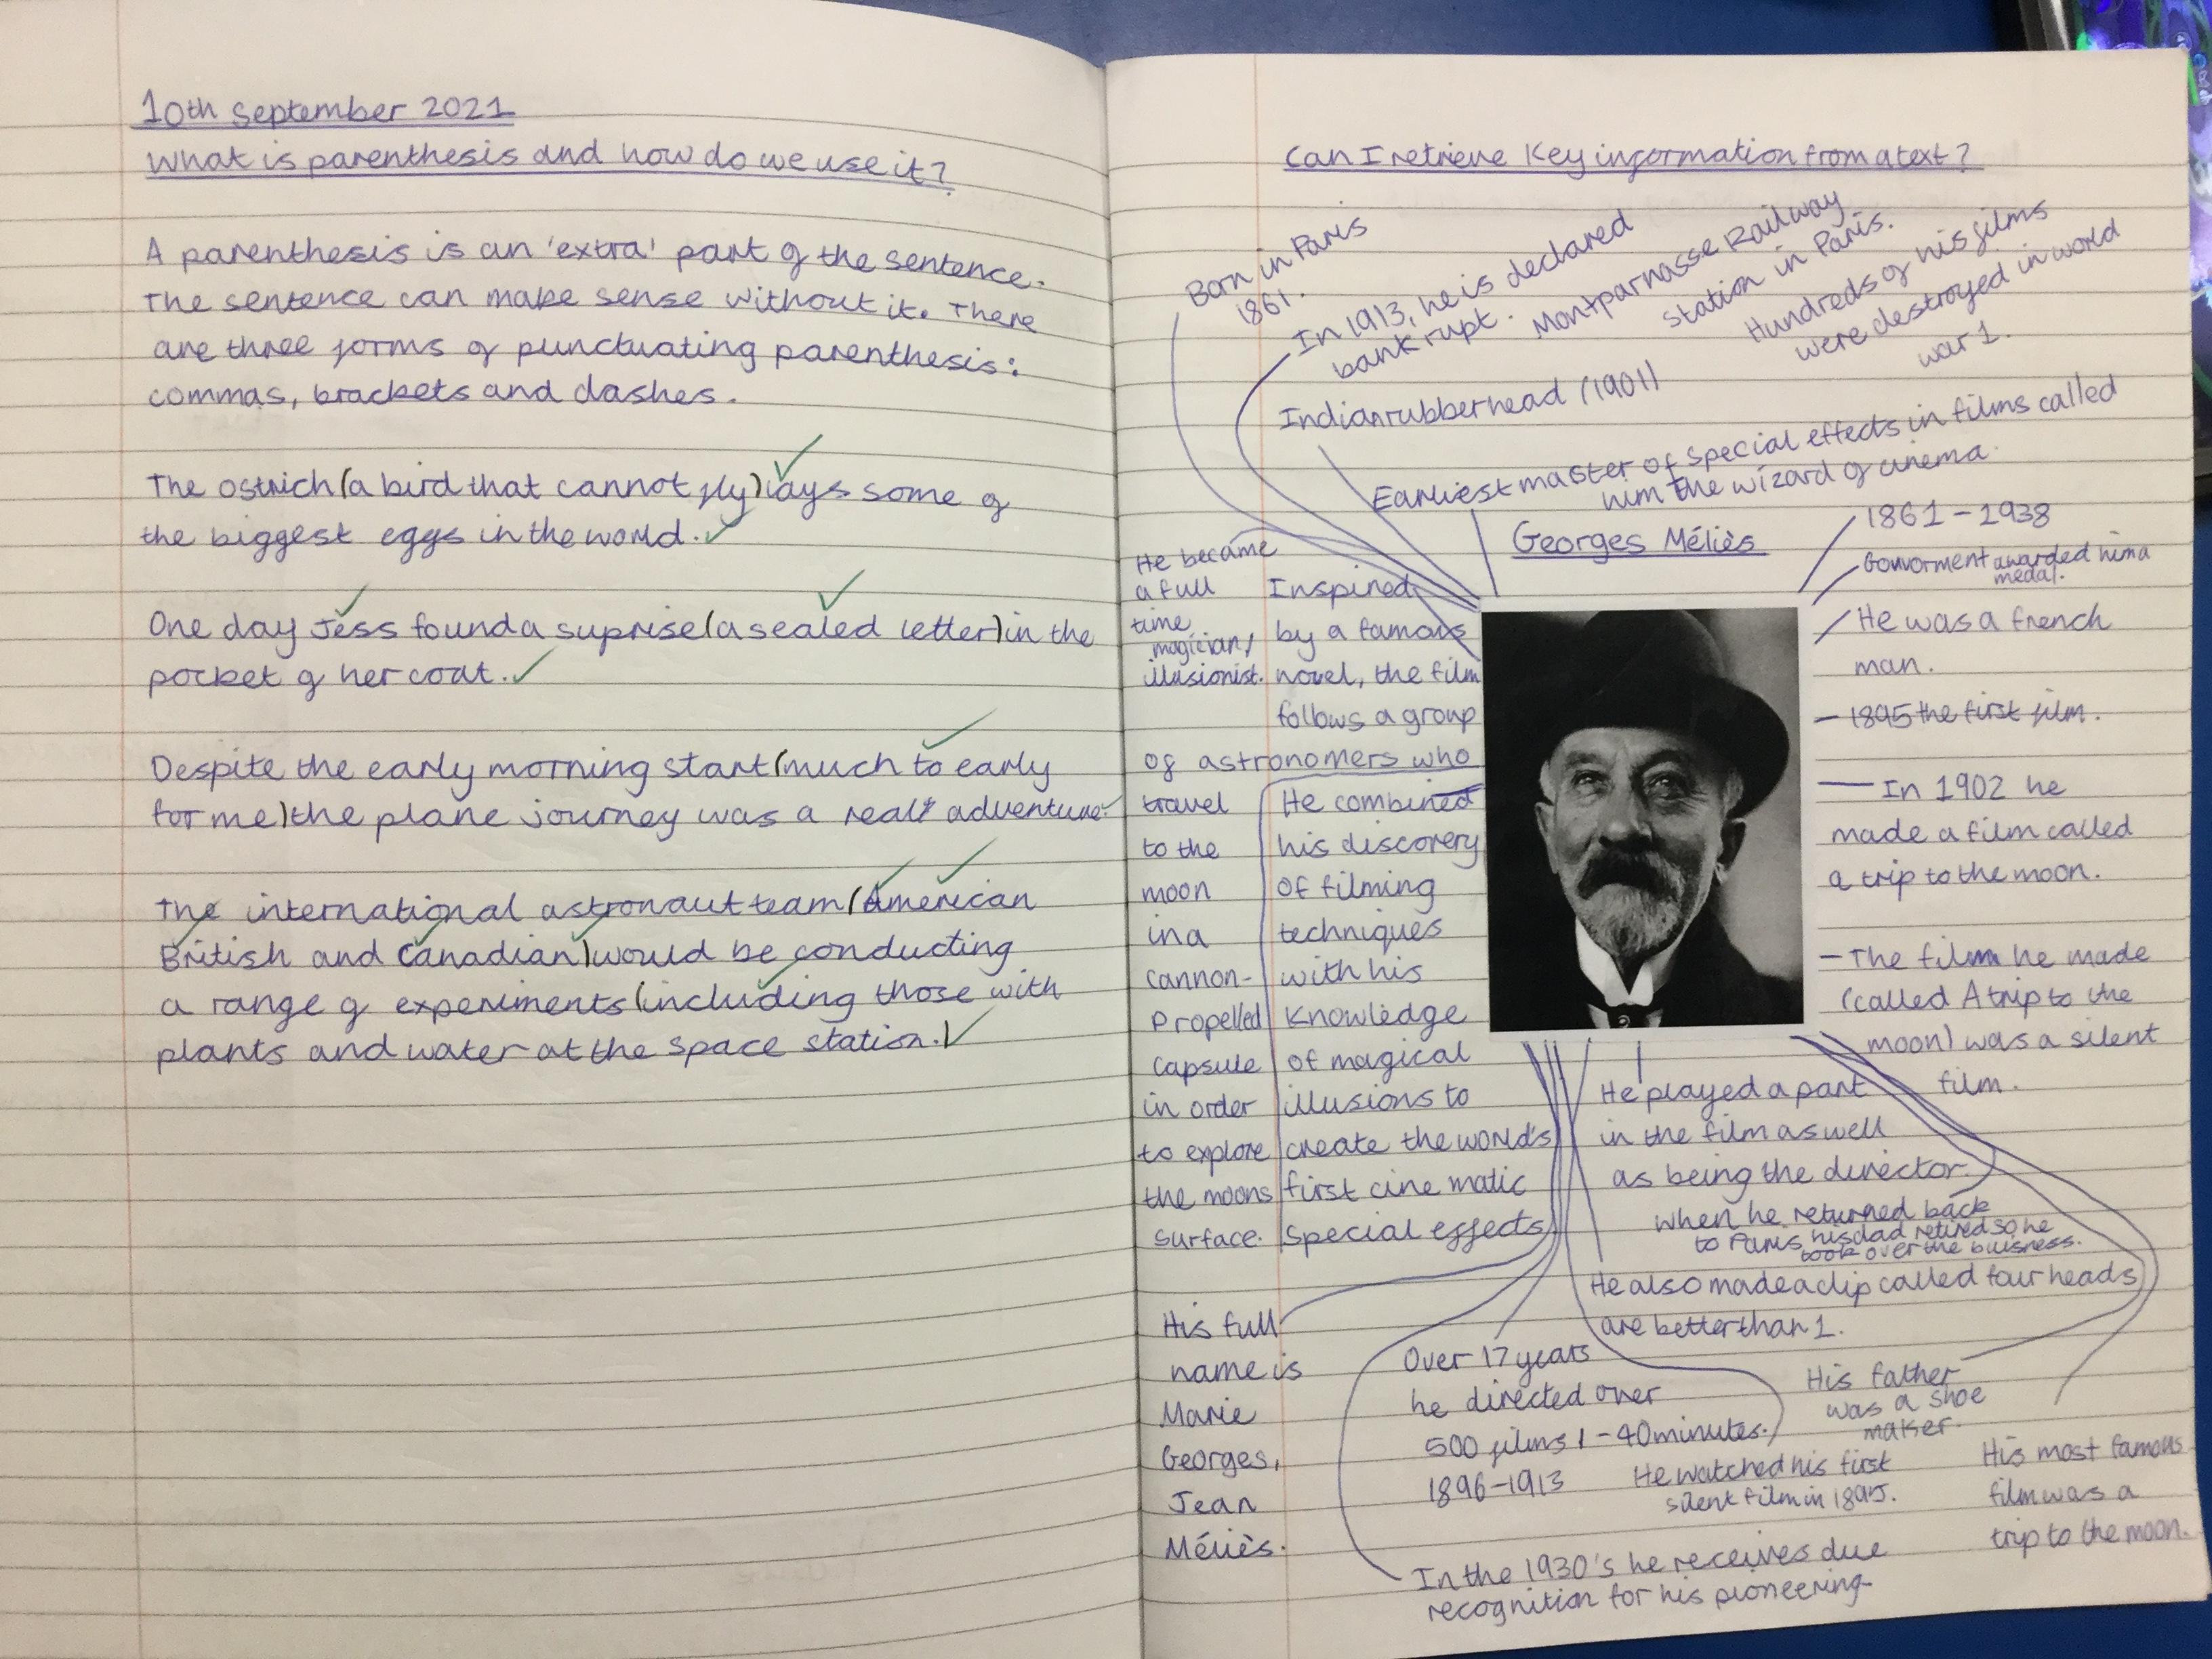 10th September 2021
What is parenthesis and how do we use it?
A parenthesis is an 'extra' part of the sentence.
The sentence can make sense without it. There
are three forms of punctuating parenthesis:
commas, brackets and dashes.
The ostrich (a bird that cannot fly) lays some of
the biggest eggs in the world.
One day Jess found a suprise (a sealed letter) in the
pocket of her coat.
Despite the early morning start (much to early
for me) the plane journey was a real adventure.
The international astronaut team (American
British and Canadian) would be conducting
a range of experiments (including those with
plants and water at the space station.)
Can I retrieve key information from a text?
Born in Paris
1861.
In 1913, he is declared
bankrupt.
Montparnasse Railway
station in Paris.
Hundreds of his films
were destroyed in world
war 1.
Indian rubber head (1901)
Earliest master of special effects in films called
him the wizard of cinema
Georges Méliès
1861 - 1938
Gouvorment awarded him a
medal.
He was a french
man.
1895 the first film.
In 1902 he
made a film called
a trip to the moon.
The film he made
(called A trip to the
moon) was a silent
film.
He became
a full
time
magician/
illusionist.
Inspired
by a famous
novel, the film
follows a group
of astronomers who
travel
to the
moon
in a
cannon-
propelled
capsule
in order
to explore
the moons
surface.
He combined
his discovery
of filming
techniques
with his
knowledge
of magical
illusions to
create the world's
first cinematic
special effects
He played a part
in the film as well
as being the director.
when he returned back
to Paris his dad retired so he
took over the buisness.
He also made a clip called four heads
are better than 1.
His full
name is
Marie
Georges,
Jean
Méliès.
Over 17 years
he directed over
500 films 1 - 40 minutes.
1896-1913
He watched his first
silent film in 1895.
His father
was a shoe
maker.
His most famous
film was a
trip to the moon.
In the 1930's he receives due
recognition for his pioneering